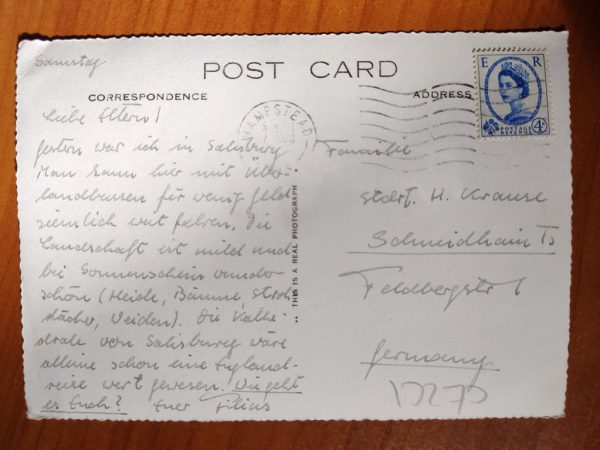 Samstag
POST CARD
CORRESPONDENCE
ADDRESS
E R
POSTAGE
REVENUE
4D
HAMPSTEAD
Liebe Eltern!
gestern war ich in Salisbury.
Man kann hier mit Über-
landbussen für wenig Geld
ziemlich weit fahren. Die
Landschaft ist mild und
bei Sonnenschein wunder-
schön (Heide, Bäume, Stroh-
dächer, Weiden). Die Kathe-
drale von Salisbury wäre
alleine schon eine England-
reise wert gewesen. Wie geht
es Euch? Euer Filius
THIS IS A REAL PHOTOGRAPH
Familie
H. Krause
Schneidhain Ts
Feldbergstr 1
Germany